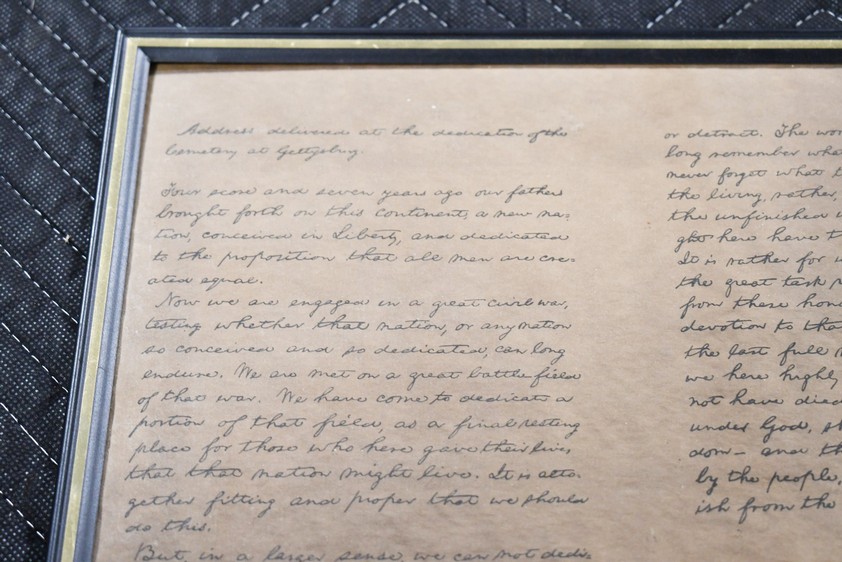 Address delivered at the dedication of the
Cemetery at Gettysburg.
Four score and seven years ago our fathers
brought forth on this continent, a new na-
tion, conceived in Liberty, and dedicated
to the proposition that all men are cre-
ated equal.
Now we are engaged in a great civil war,
testing whether that nation, or any nation
so conceived and so dedicated, can long
endure. We are met on a great battle field
of that war. We have come to dedicate a
portion of that field, as a final resting
place for those who here gave their lives
that that nation might live. It is alto-
gether fitting and proper that we should
do this.
But, in a larger sense, we can not dedi-
or detract. The
long remember
never forget what
the living, rather,
the unfinished
ght here have
It is rather for
the great task
from these
devotion to
the last full
we here highly
not have died
under God,
dom - and
by the people,
ish from the